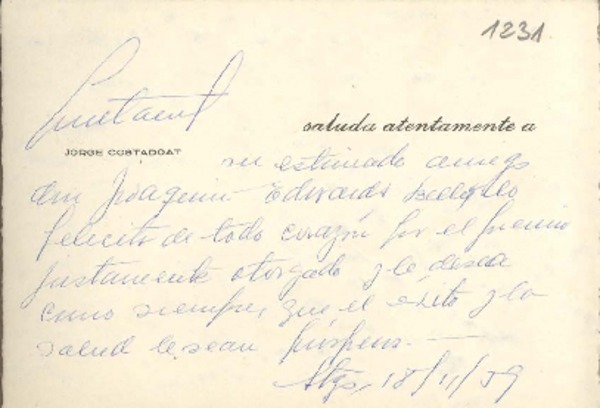 1231
saluda atentamente a
JORGE COSTADOAT
su estimado amigo
don Joaquin Edwards Bello y lo
felicita de todo corazón por el premio
justamente otorgado y le desea
como siempre, que el éxito y la
salud le sean prósperos.
Stgo, 18/11/59